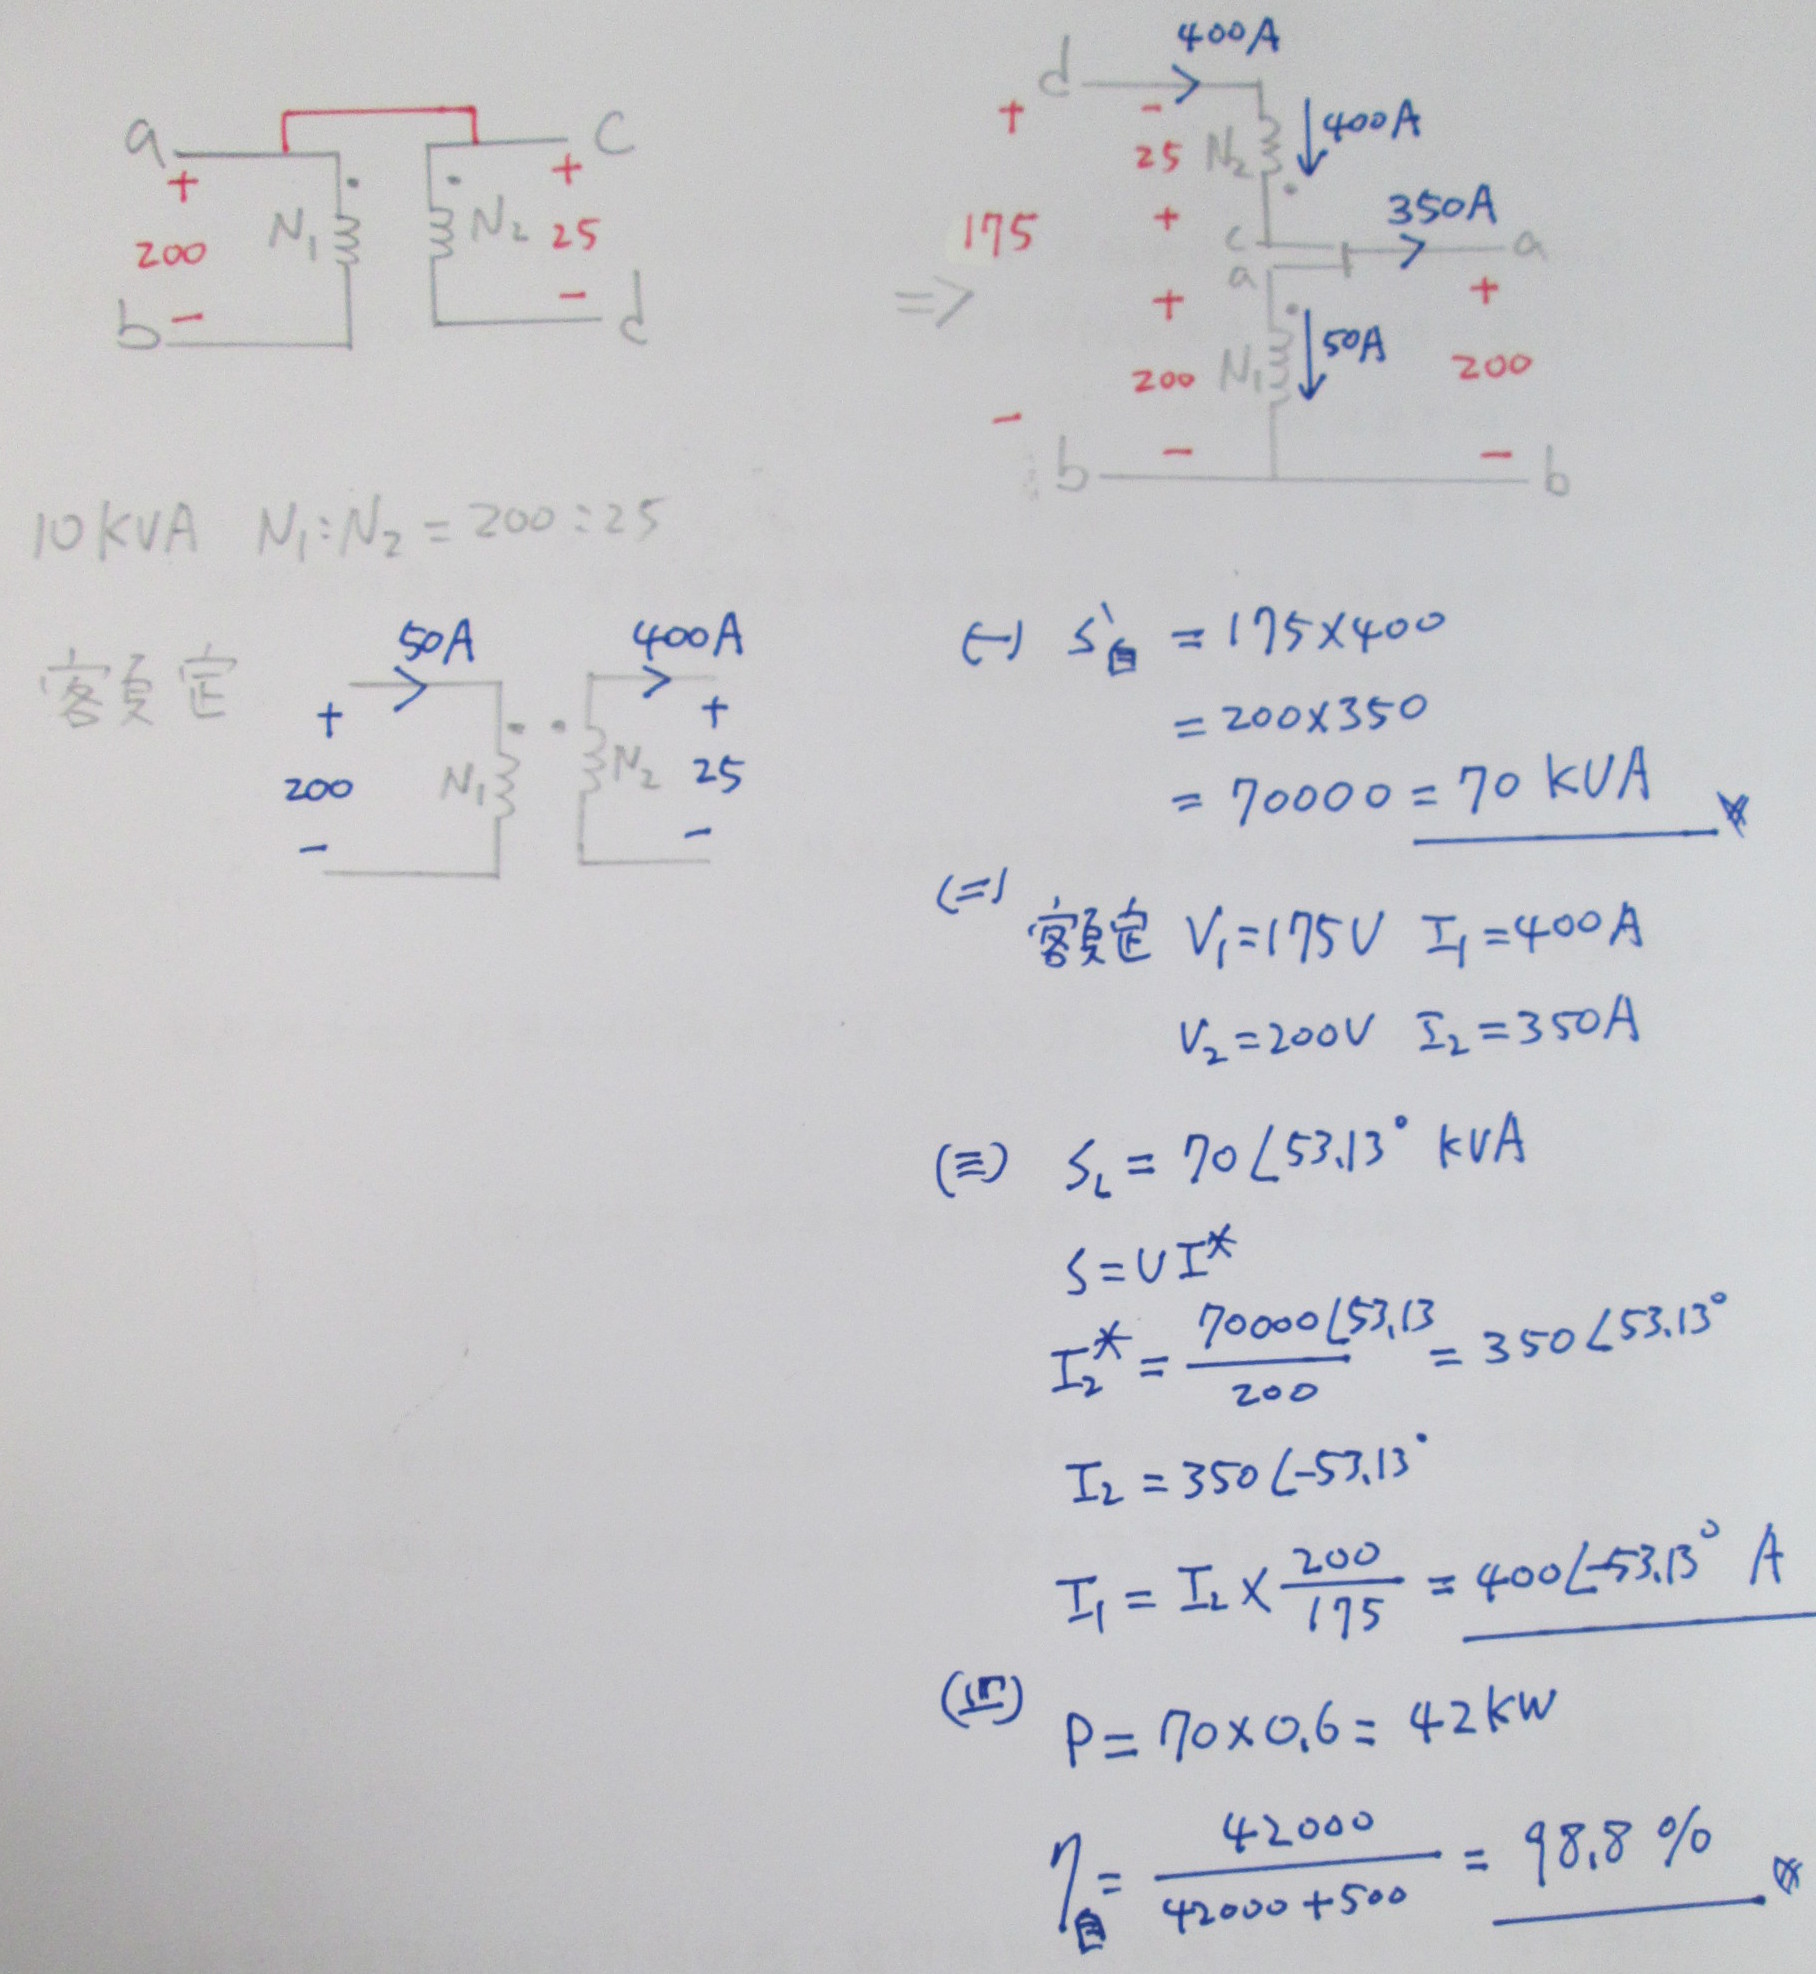 a + 200 - b N₁ N₂ + 25 - c d
=>
d 400A
+ 175 -
- 25 + N₂ 400A
c a 350A a
+ 200 - N₁ 50A + 200 -
b b
10KVA N₁:N₂ = 200:25
額定 50A 400A
+ 200 - N₁ N₂ + 25 -
(一) S自 = 175×400
= 200×350
= 70000 = 70 KVA
(二) 額定 V₁=175V I₁=400A
V₂=200V I₂=350A
(三) S_L = 70∠53.13° KVA
S=VI*
I₂* = 70000∠53.13 / 200 = 350∠53.13°
I₂ = 350∠-53.13°
I₁ = I₂ × 200/175 = 400∠-53.13° A
(四) P = 70×0.6 = 42KW
η自 = 42000 / 42000+500 = 98.8%